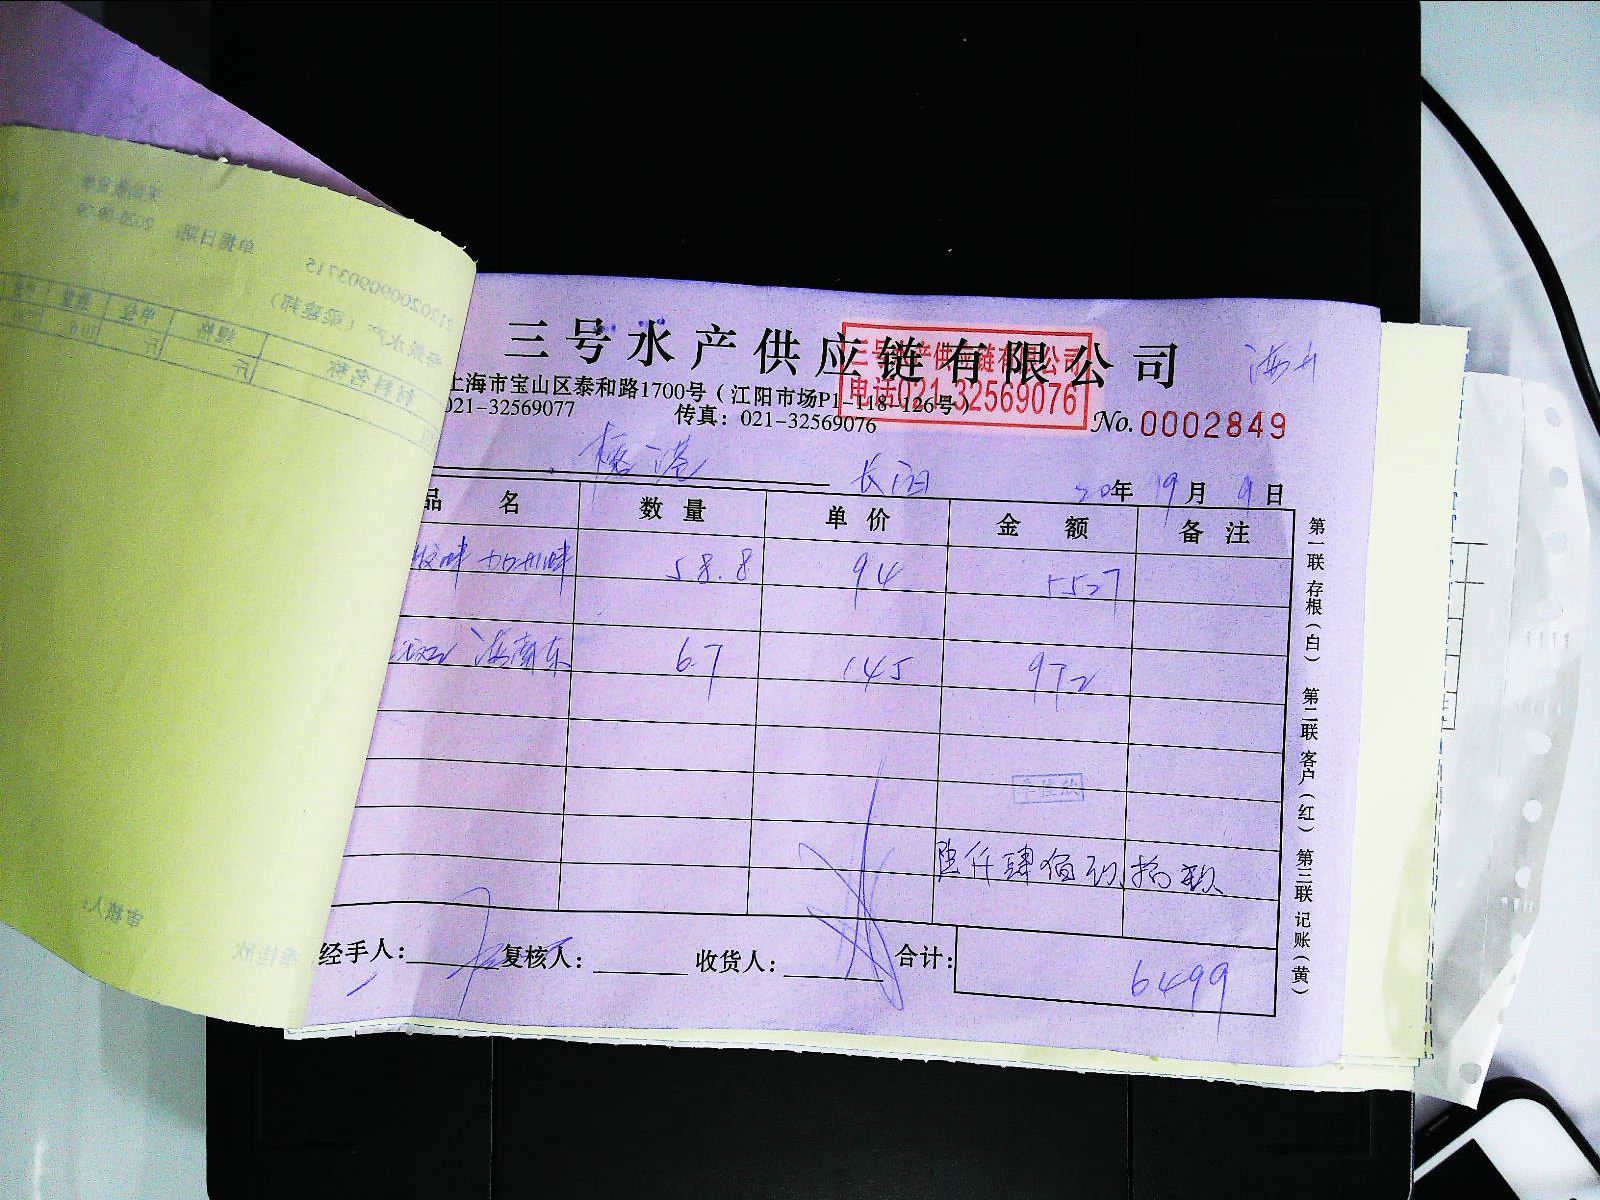 三号水产供应链有限公司
三号水产供应链有限公司
电话021-32569076
上海市宝山区泰和路1700号（江阳市场P1-118-126号
021-32569077 传真：021-32569076
No.0002849
长阳 20年 9月 9日
品 名 数 量 单 价 金 额 备 注
加州 58.8 94 5527
海南东 6.7 145 972
季佳欣
陆仟肆佰 拾
经手人： 复核人： 收货人： 合计： 6499
第一联 存根（白） 第二联 客户（红） 第三联 记账（黄）
单据日期：
212020090903715
材料名称 规格 单位 数量
斤
审核人：
季佳欣